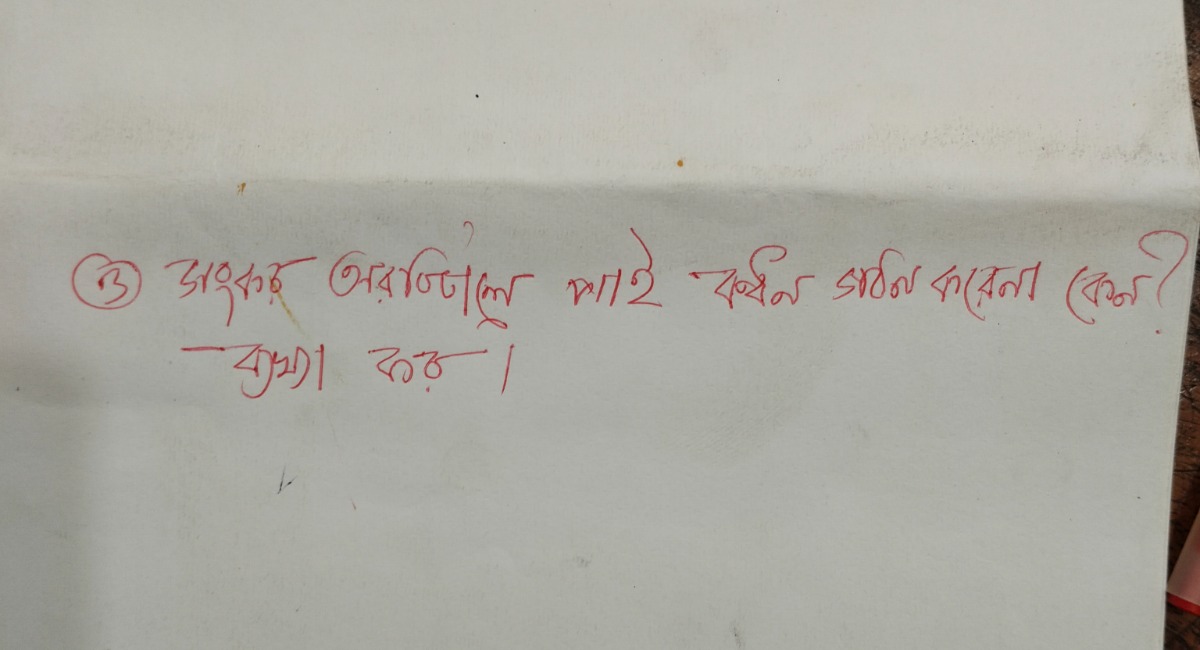 ③ সংকর অরবিটালে পাই বন্ধন গঠন করেনা কেন?
ব্যখ্যা কর।